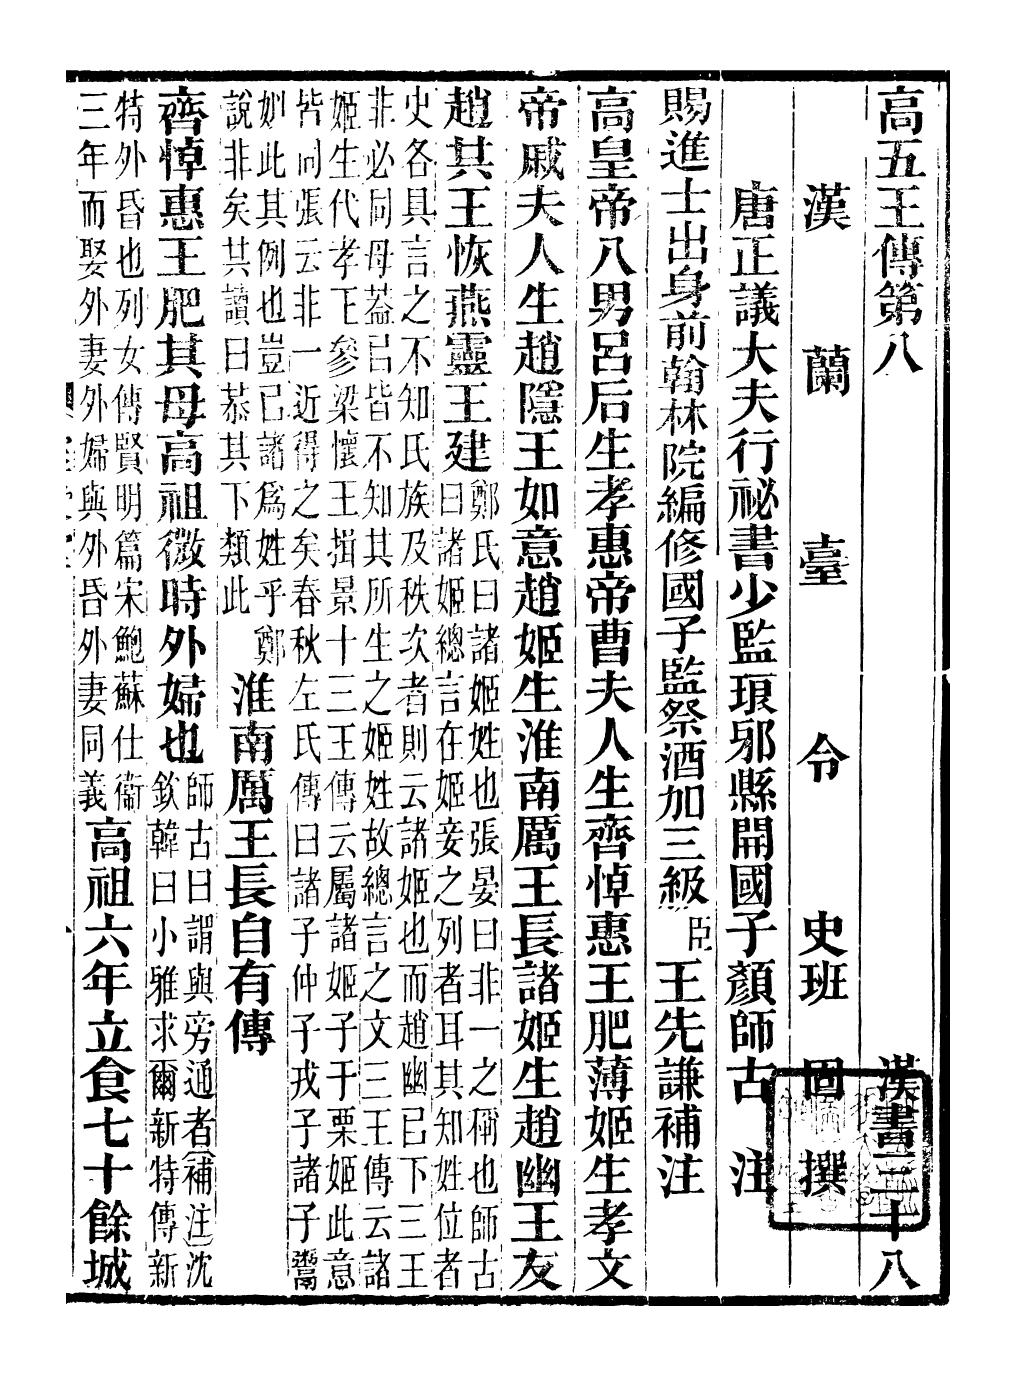 高五王傳第八　漢書三十八
漢蘭臺令史班固撰
唐正議大夫行祕書少監琅邪縣開國子顏師古注
賜進士出身前翰林院編修國子監祭酒加三級臣王先謙補注
高皇帝八男呂后生孝惠帝曹夫人生齊悼惠王肥薄姬生孝文
帝戚夫人生趙隱王如意趙姬生淮南厲王長諸姬生趙幽王友
趙共王恢燕靈王建
鄭氏曰諸姬姓也張晏曰非一之稱也師古
曰諸姬總言在姬妾之列者耳其知姓位者
史各具言之不知氏族及秩次者則云諸姬也而趙幽已下三王
非必同母蓋㠯皆不知其所生之姬姓故總言之文三王傳云諸
姬生代孝王參梁懷王揖景十三王傳云屬諸姬子于栗姬此意
皆同張云非一近得之矣春秋左氏傳曰諸子仲子戎子諸子鬻
姒此其例也豈㠯諸爲姓乎鄭
說非矣共讀曰恭其下類此
淮南厲王長自有傳
齊悼惠王肥其母高祖微時外婦也
師古曰謂與旁通者補注沈
欽韓曰小雅求爾新特傳新
特外昏也列女傳賢明篇宋鮑蘇仕衞
三年而娶外妻外婦與外昏外妻同義
高祖六年立食七十餘城